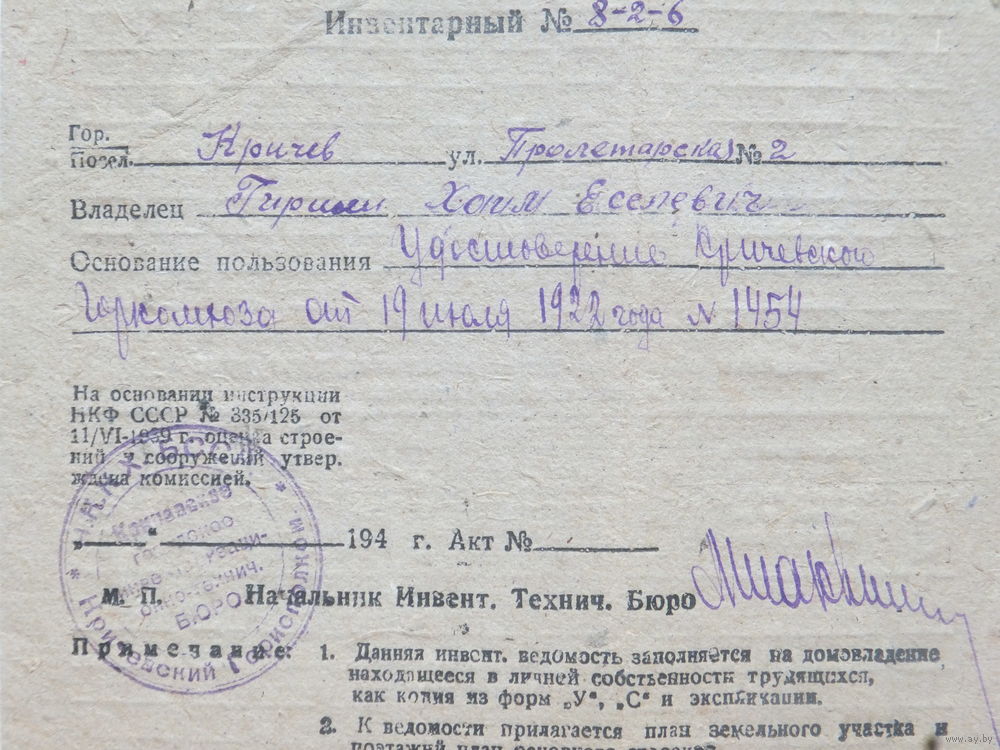 Инвентарный № 8-2-6
Гор.
Посел. Кричев ул. Пролетарская № 2
Владелец Хаим
Основание пользования Удостоверение Кричевского
Горкомхоза от 19 июля 1922 года № 1454
На основании инструкции
НКФ СССР № 335/125 от
11/VI-1939 г. оценка строе-
ний и сооружений утвер.
ждена комиссией.
„ “ 194 г. Акт №
М. П. Начальник Инвент. Технич. Бюро
НККХ БССР
Кричевский Горисполком
Кричевское
городское
инвентаризаци-
онно-технич.
БЮРО
Примечание: 1. Данная инвент. ведомость заполняется на домовладение,
находящееся в личной собственности трудящихся,
как копия из форм „У“, „С“ и экспликации.
2. К ведомости прилагается план земельного участка и
поэтажный план основного строения.
www.ay.by